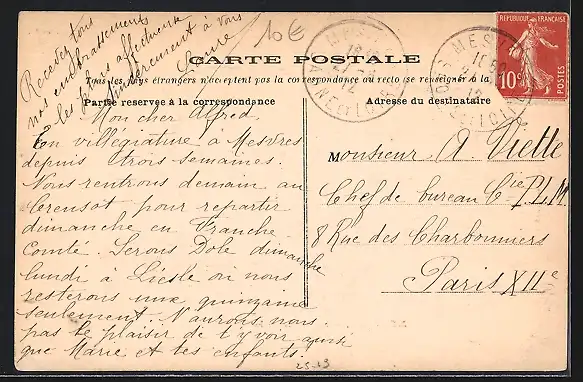 Recevez tous
nos embrassements
les plus affectueux
sincèrement à vous
10€
CARTE POSTALE
Tous les pays étrangers n'acceptent pas la correspondance au recto (se renseigner à la
Partie reservée à la correspondance
Adresse du destinataire
REPUBLIQUE FRANÇAISE
10c
POSTES
Mon cher Alfred.
En villégiature à Mesvres
depuis trois semaines.
Nous rentrons demain au
Creusot pour repartir
dimanche en Franche
Comté. Serons Dole dimanche
lundi à Liesle où nous
resterons une quinzaine
seulement. N'aurons nous
pas le plaisir de t'y voir ainsi
que Marie et tes enfants.
Monsieur A Viette
Chef de bureau Cie P.L.M.
8 Rue des Charbonniers
Paris XIIe
25-13